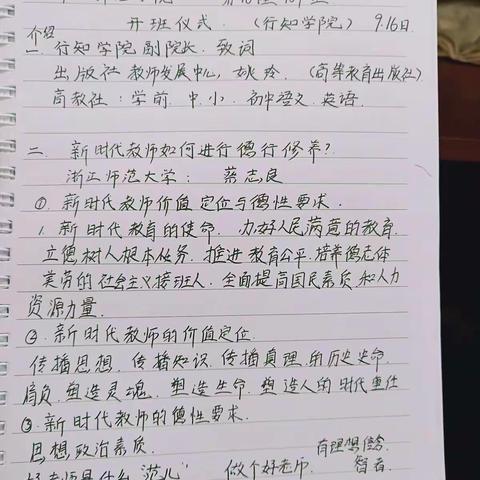 开班仪式. (行知学院) 9.16日.
介绍
一. 行知学院副院长. 致词
出版社 教师发展中心, 姚玲. (高等教育出版社)
高教社: 学前. 中. 小. 初中语文. 英语.
二. 新时代教师如何进行德行修养?
浙江师范大学: 蔡志良
①. 新时代教师价值定位与德性要求.
1. 新时代教育的使命. 力好人民满意的教育.
立德树人根本任务. 推进教育公平. 培养德志体
美劳的社会主义接班人. 全面提高国民素质和人力
资源力量.
②. 新时代教师的价值定位.
传播思想. 传播知识. 传播真理的历史史命.
肩负. 塑造灵魂. 塑造生命. 塑造人的时代重任
③. 新时代教师的德性要求.
思想政治素质. 有理想信念
好老师是什么"范儿" 做个好老师. 智者.